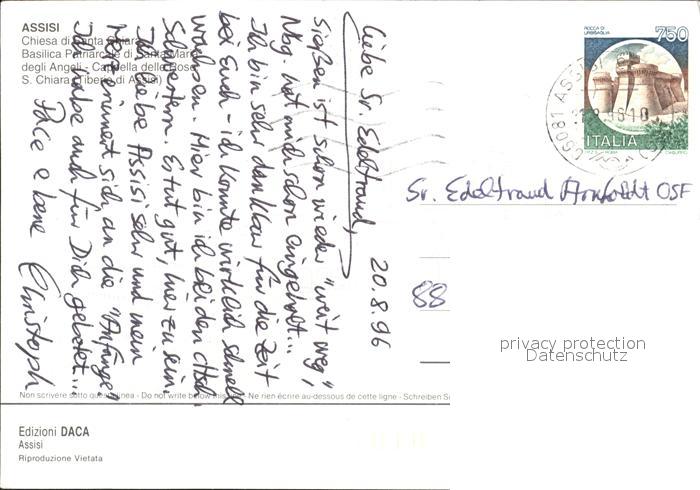 ASSISI
Chiesa di Santa Chiara
Basilica Patriarcale di Santa Maria
degli Angeli - Cappella delle Rose
S. Chiara (Tiberio di Assisi)
20.8.96
Liebe Sr. Edeltraud,
Sießen ist schon wieder "weit weg",
Nbg. hat mich schon eingeholt...
Ich bin sehr dankbar für die Zeit
bei Euch - ich konnte wirklich schnell
wachsen. Hier bin ich bei den ital.
Schwestern. Es tut gut, hier zu sein.
Ich liebe Assisi sehr und mein
Herz erinnert sich an die "Anfänge"
Ich habe auch für Dich gebetet...
Pace e bene Christoph
ROCCA DI
URBISAGLIA
750
ITALIA
06081 ASSISI
Sr. Edeltraud Arnfoldt OSF
88
privacy protection
Datenschutz
Non scrivere sotto questa linea - Do not write below this line - Ne rien écrire au-dessous de cette ligne - Schreiben S
Edizioni DACA
Assisi
Riproduzione Vietata